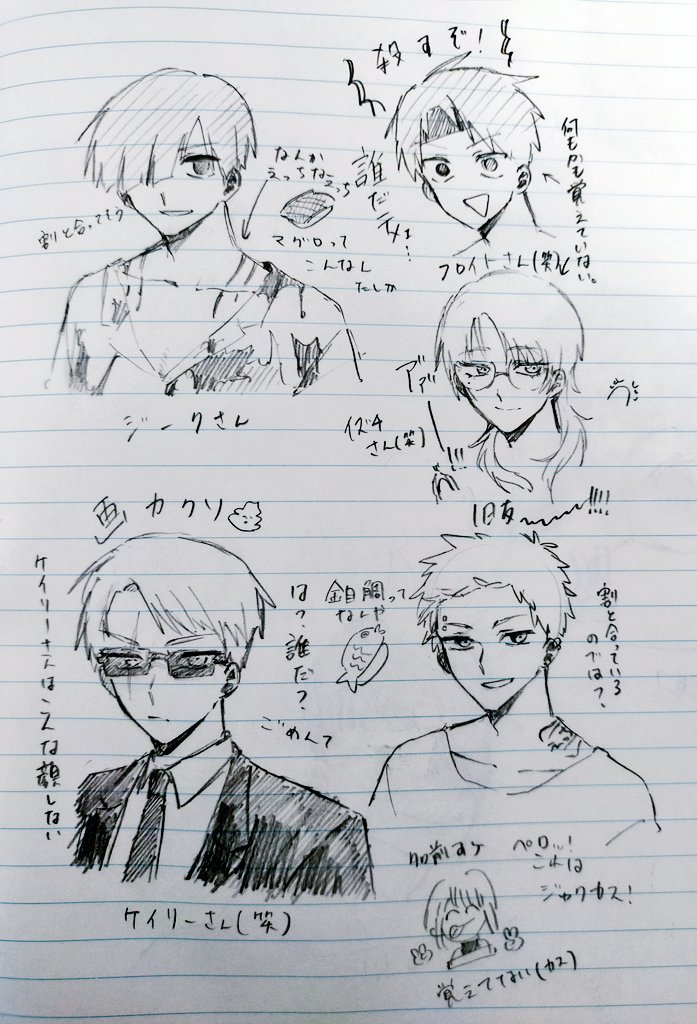 殺すぞ！
なんか
えっちな
えっち
誰だテメェ…
何もかも覚えていない。
割と合ってそう
マグロって
こんなん
だしか
フロイトさん(笑)
ジークさん
アァァ
イズチ
さん(笑)
!!!
旧友〜〜!!!!
画カクソ
ケイリーさんはこんな顔しない
は？誰だ？
ごめんて
金目鯛って
なんや
割と合っている
のでは？
ケイリーさん(笑)
ペロッ！
これは
ジャックカス！
覚えてない(カス)